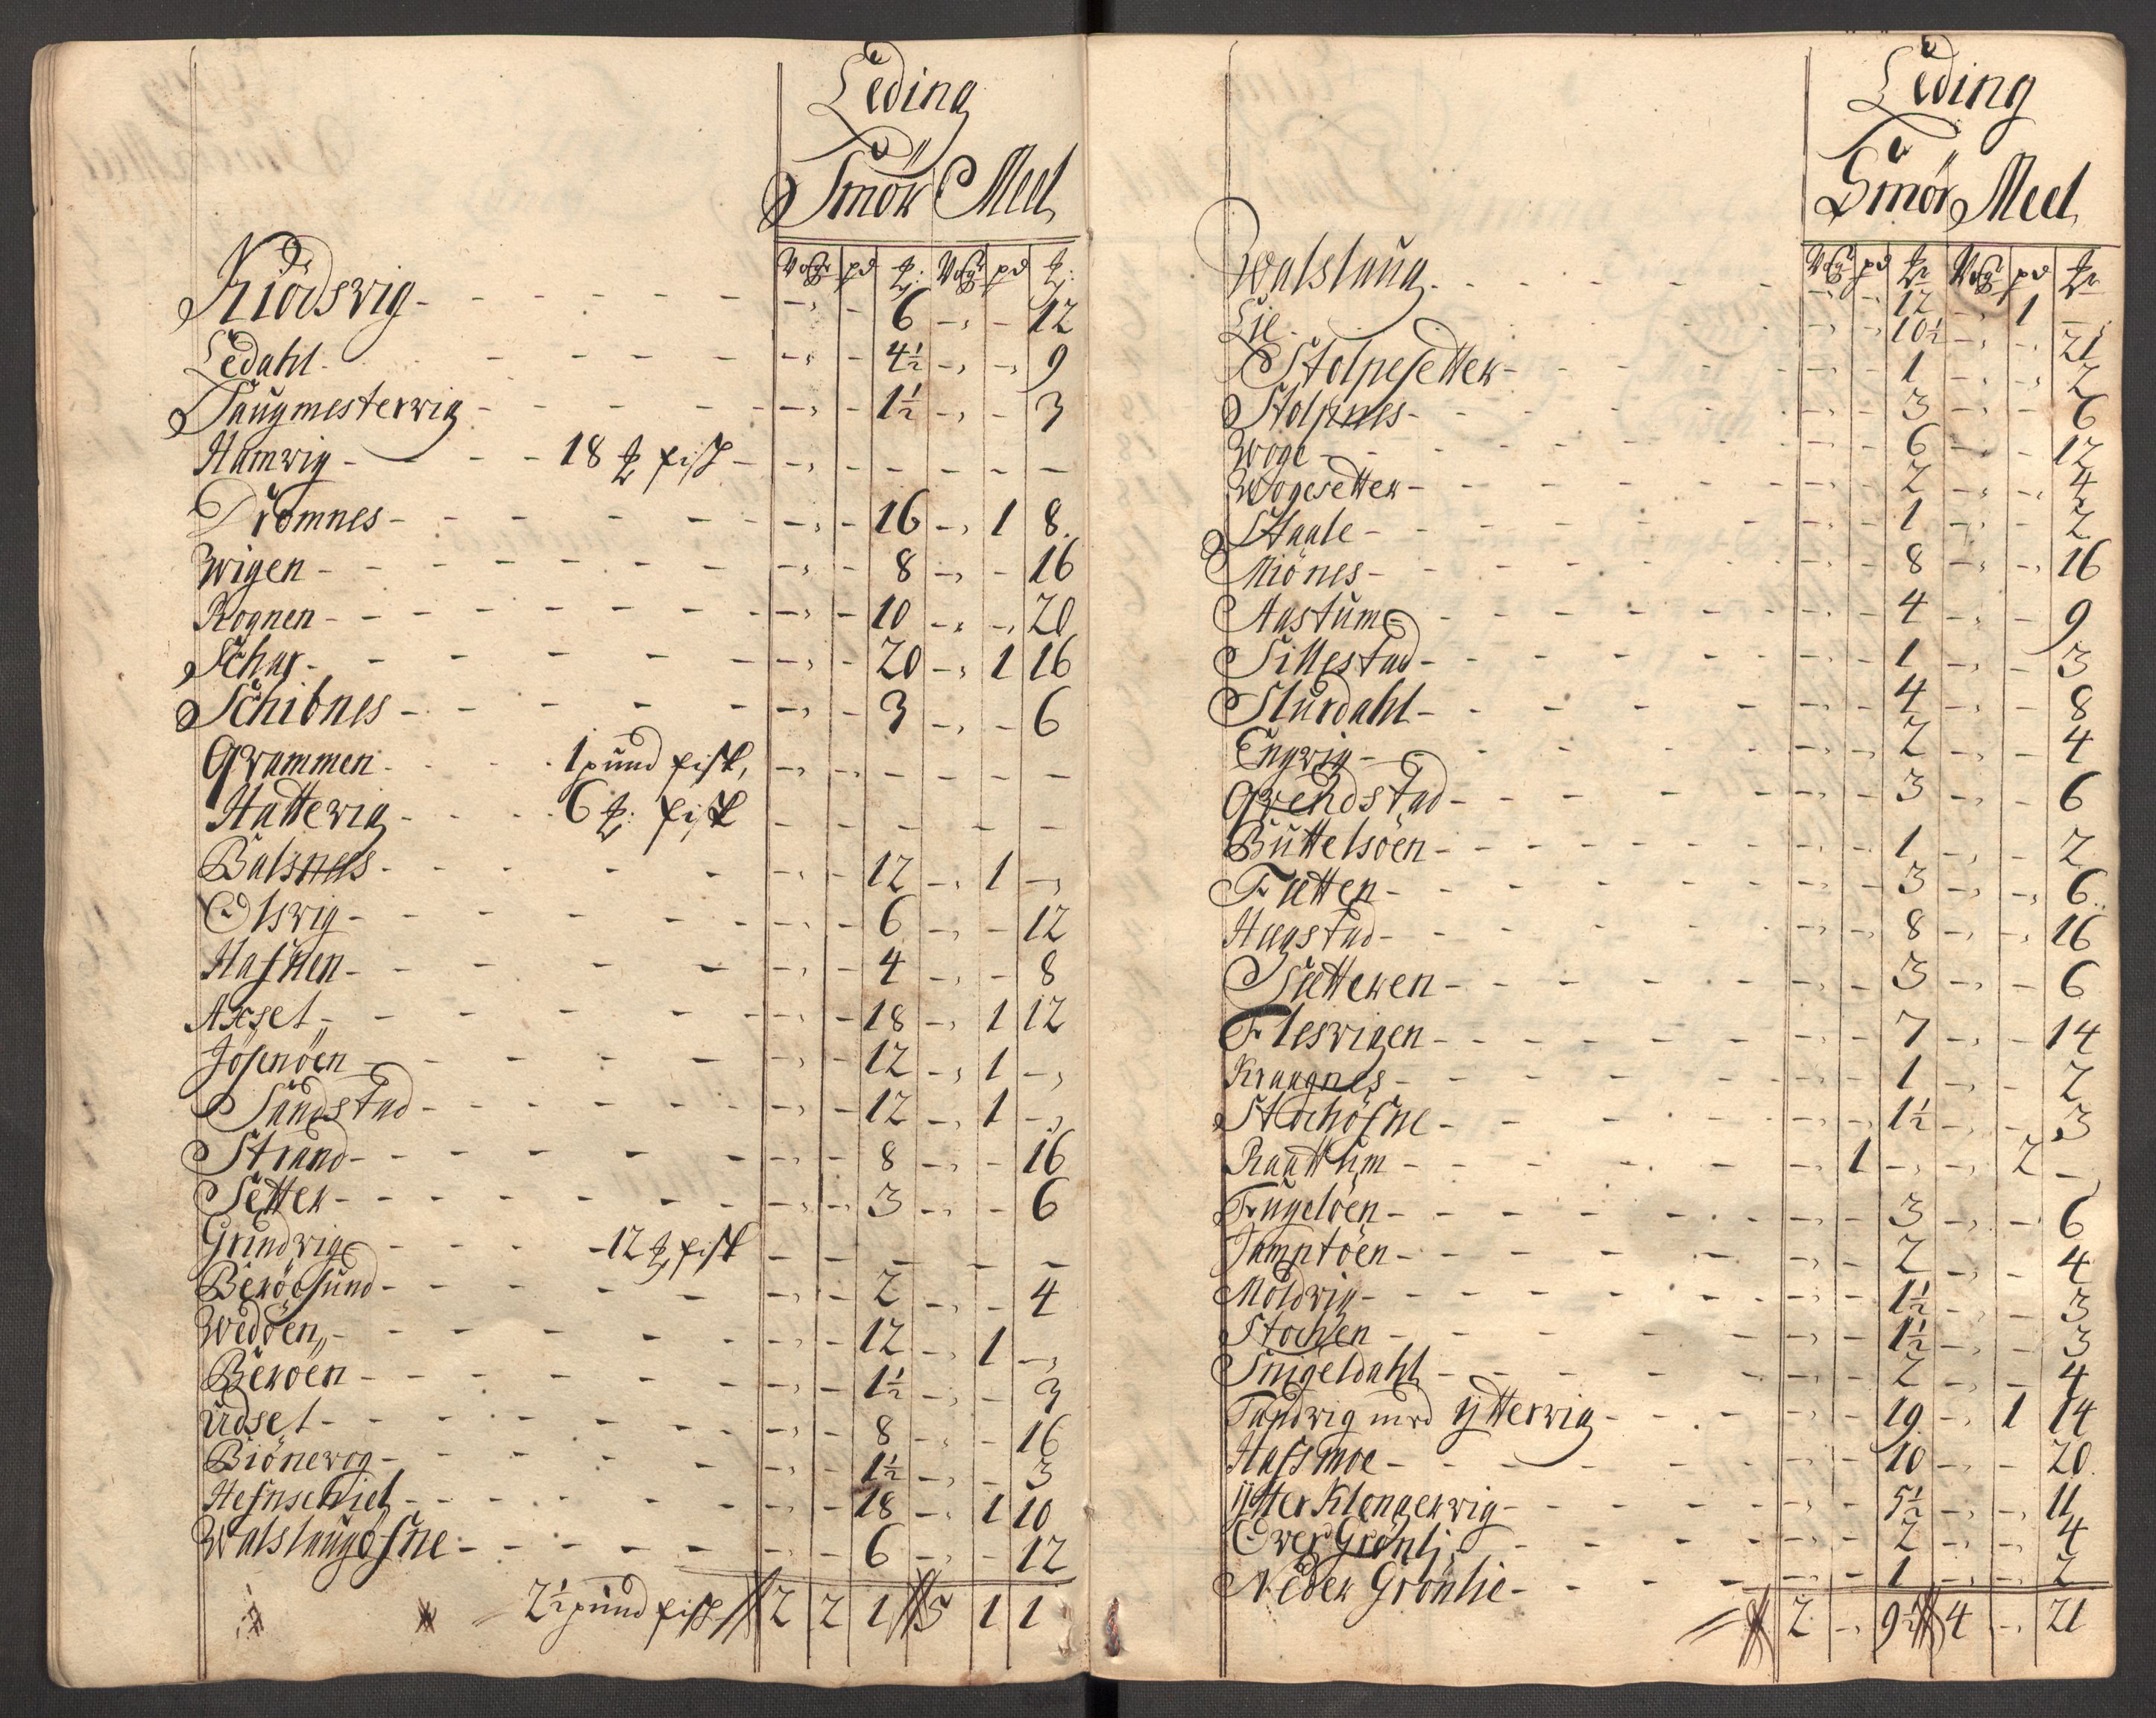 Leding
Smör Meel
Vogr pd ℔: Vogr pd ℔:
Kiödsvig - - 6 - - 12
Ledahl - - 4½ - - 9
Taugmestervig - - 1½ - - 3
Hamvig - 18 ℔ fisk - - - - - -
Dromnes - - 16 - 1 8
Wigen - - 8 - - 16
Rognen - - 10 - - 20
Schar - - 20 - 1 16
Schibnes - - 3 - - 6
Qvammen - 1 pund fisk, - - - - - -
Hattevig - 6 ℔: fisk - - - - - -
Balsnes - - 12 - 1 -
Olsvig - - 6 - - 12
Hafnen - - 4 - - 8
Axset - - 18 - 1 12
Jösenöen - - 12 - 1 -
Sandstad - - 12 - 1 -
Strand - - 8 - - 16
Setter - - 3 - - 6
Grindvig - 12 ℔ fisk - - - - - -
Beröesund - - 2 - - 4
Wedöen - - 12 - 1 -
Beröen - - 1½ - - 3
Udset - - 8 - - 16
Biönevog - - 1½ - - 3
Hefnschiel - - 18 - 1 10
Walslaugöfne - - 6 - - 12
2½ pund fisk 2 2 1 5 1 1
Leding
Smör Meel
Vogr pd ℔ Vogr pd ℔
Walslaug - - 12 - 1 -
Lie - - 10½ - - 21
Stolpesetter - - 1 - - 2
Stolpnes - - 3 - - 6
Woge - - 6 - - 12
Wogesetter - - 2 - - 4
Staale - - 1 - - 2
Miönes - - 8 - - 16
Aastum - - 4 - - 9
Sillestad - - 1 - - 3
Slurdahl - - 4 - - 8
Engvig - - 2 - - 4
Qvendstad - - 3 - - 6
Büttelsöen - - 1 - - 2
Fætten - - 3 - - 6
Hægstad - - 8 - - 16
Sætteren - - 3 - - 6
Flesvigen - - 7 - - 14
Kraagnes - - 1 - - 2
Stochöfne - - 1½ - - 3
Raattum - 1 - - 2 -
Fugelöen - - 3 - - 6
Jamptöen - - 2 - - 4
Moldvig - - 1½ - - 3
Stochen - - 1½ - - 3
Snigeldahl - - 2 - - 4
Tandvig med ÿttervig - - 19 - 1 14
Hafsmoe - - 10 - - 20
ÿtter Klongervig - - 5½ - - 11
Over Grönli - - 2 - - 4
Neder Grönlie - - 1 - - 2
2 - 9½ 4 - 21